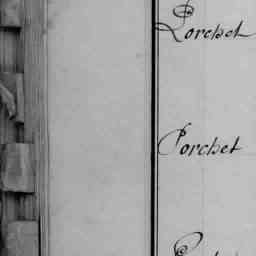 Porchet
Porchet